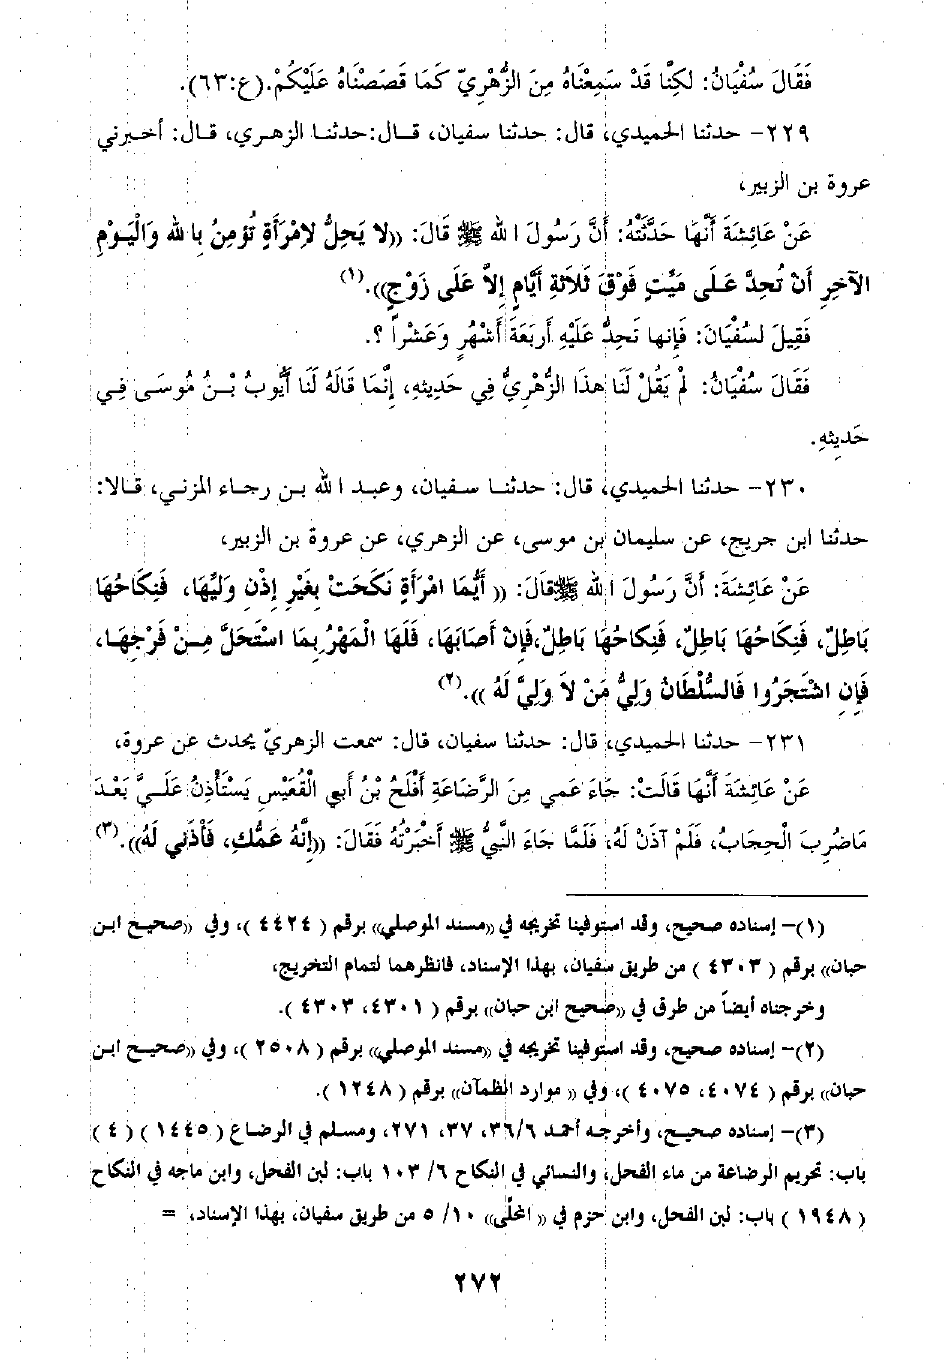 فَقَالَ سُفْيَانُ: لكِنَّا قَدْ سَمِعْنَاهُ مِنَ الزُّهْرِيّ كَمَا قَصَصْنَاهُ عَلَيْكُمْ.(ع:٦٣).
٢٢٩- حدثنا الحميدي، قال: حدثنا سفيان، قال:حدثنا الزهري، قال: أخبرني
عروة بن الزبير،
عَنْ عَائِشَةَ أَنَّهَا حَدَّثَتْهُ: أَنَّ رَسُولَ الله ﷺ قَالَ: ((لا يَحِلُّ لاِمْرَأَةٍ تُؤمِنُ بِالله وَالْيَوْمِ
الآخرِ أَنْ تُحِدَّ عَلَى مَيِّتٍ فَوْقَ ثَلاَثَةِ أَيَّامٍ إِلاَّ عَلَى زَوْجٍ)).(١)
فَقِيلَ لسُفْيَانَ: فَإِنها تَحِدُّ عَلَيْهِ أَرْبَعَةَ أَشْهُرٍ وَعَشْراً ؟.
فَقَالَ سُفْيَانُ: لَمْ يَقُلْ لَنَا هذَا الزُّهْرِيُّ فِي حَدِيثِهِ، إِنَّمَا قَالَهُ لَنَا أَيُّوبُ بْنُ مُوسَى فِي
حَدِيثِهِ.
٢٣٠- حدثنا الحميدي، قال: حدثنا سفيان، وعبد الله بن رجاء المزني، قالا:
حدثنا ابن جريج، عن سليمان بن موسى، عن الزهري، عن عروة بن الزبير،
عَنْ عَائِشَةَ: أَنَّ رَسُولَ الله ﷺ قَالَ: (( أَيُّمَا امْرَأَةٍ نَكَحَتْ بِغَيْرِ إِذْنِ وَلِيِّهَا، فَنِكَاحُهَا
بَاطِلٌ، فَنِكَاحُهَا بَاطِلٌ، فَنِكَاحُهَا بَاطِلٌ،فَإِنْ أَصَابَهَا، فَلَهَا الْمَهْرُ بِمَا اسْتَحَلَّ مِنْ فَرْجِهَا،
فَإِنِ اشْتَجَرُوا فَالسُّلْطَانُ وَلِيُّ مَنْ لاَ وَلِيَّ لَهُ )).(٢)
٢٣١- حدثنا الحميدي، قال: حدثنا سفيان، قال: سمعت الزهريّ يحدث عن عروة،
عَنْ عَائِشَةَ أَنَّهَا قَالَتْ: جَاءَ عَمي مِنَ الرَّضَاعَةِ أَفْلَحُ بْنُ أَبي الْقُعَيْسِ يَسْتَأْذِنُ عَلَيَّ بَعْدَ
مَاضُرِبَ الْحِجَابُ، فَلَمْ آذَنْ لَهُ، فَلَمَّا جَاءَ النَّبيُّ ﷺ أَخْبَرْتُهُ فَقَالَ: ((إِنَّهُ عَمُّكِ، فَأْذَني لَهُ)).(٣)
(١)- إسناده صحيح، وقد استوفينا تخريجه في ((مسند الموصلي)) برقم ( ٤٤٢٤ )، وفي ((صحيح ابن
حبان)) برقم ( ٤٣٠٣ ) من طريق سفيان، بهذا الإسناد، فانظرهما لتمام التخريج،
وخرجناه أيضاً من طرق في ((صحيح ابن حبان)) برقم ( ٤٣٠١، ٤٣٠٣ ).
(٢)- إسناده صحيح، وقد استوفينا تخريجه في ((مسند الموصلي)) برقم ( ٢٥٠٨ )، وفي ((صحيح ابن
حبان)) برقم ( ٤٠٧٤، ٤٠٧٥ )، وفي (( موارد الظمآن)) برقم ( ١٢٤٨ ).
(٣)- إسناده صحيح، وأخرجه أحمد ٣٦/٦، ٣٧، ٢٧١، ومسلم في الرضاع ( ١٤٤٥ ) ( ٤ )
باب: تحريم الرضاعة من ماء الفحل، والنسائي في النكاح ٦/ ١٠٣ باب: لبن الفحل، وابن ماجه في النكاح
( ١٩٤٨ ) باب: لبن الفحل، وابن حزم في (( المحلَّى)) ١٠/ ٥ من طريق سفيان، بهذا الإسناد، =
٢٧٢